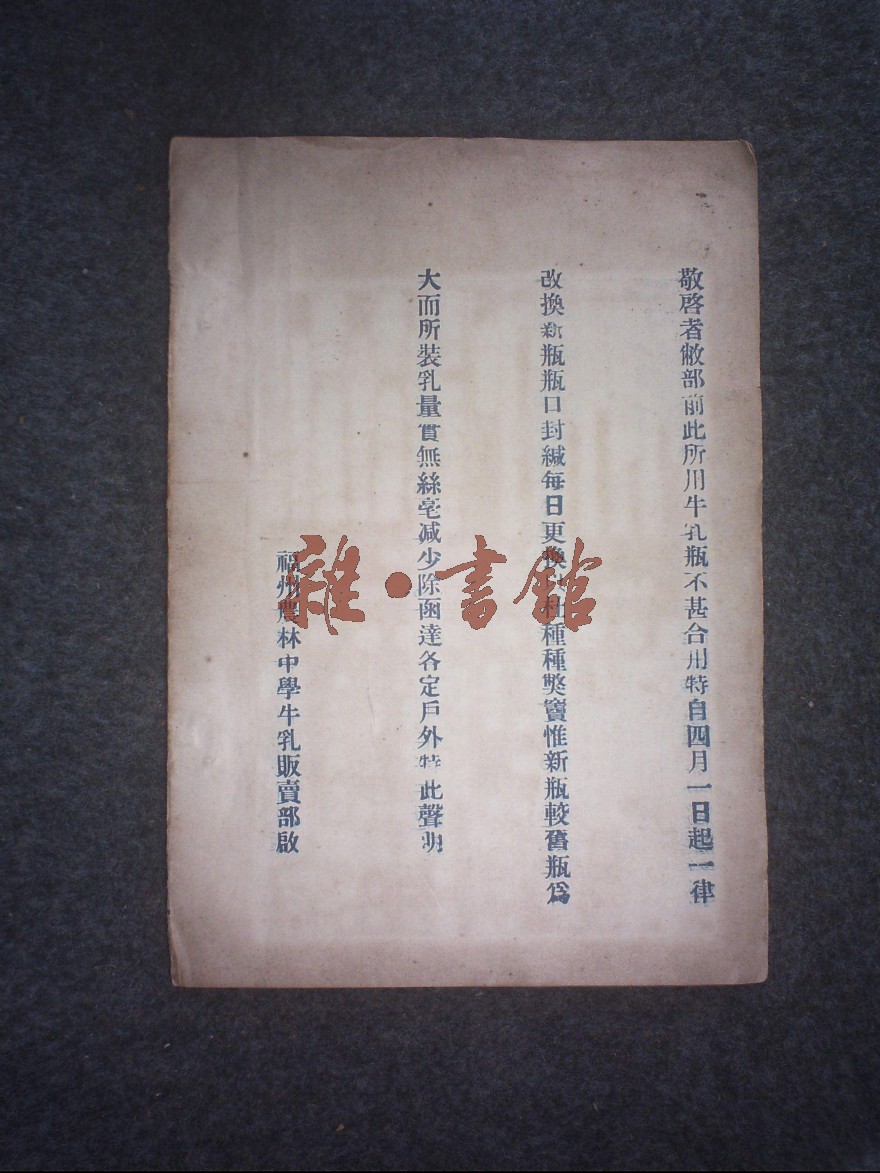 敬啓者敝部前此所用牛乳瓶不甚合用特自四月一日起一律
改換新瓶瓶口封緘每日更換以杜種種弊竇惟新瓶較舊瓶爲
大而所裝乳量實無絲毫减少除函達各定戶外特此聲明
福州農林中學牛乳販賣部啟
雜·書館